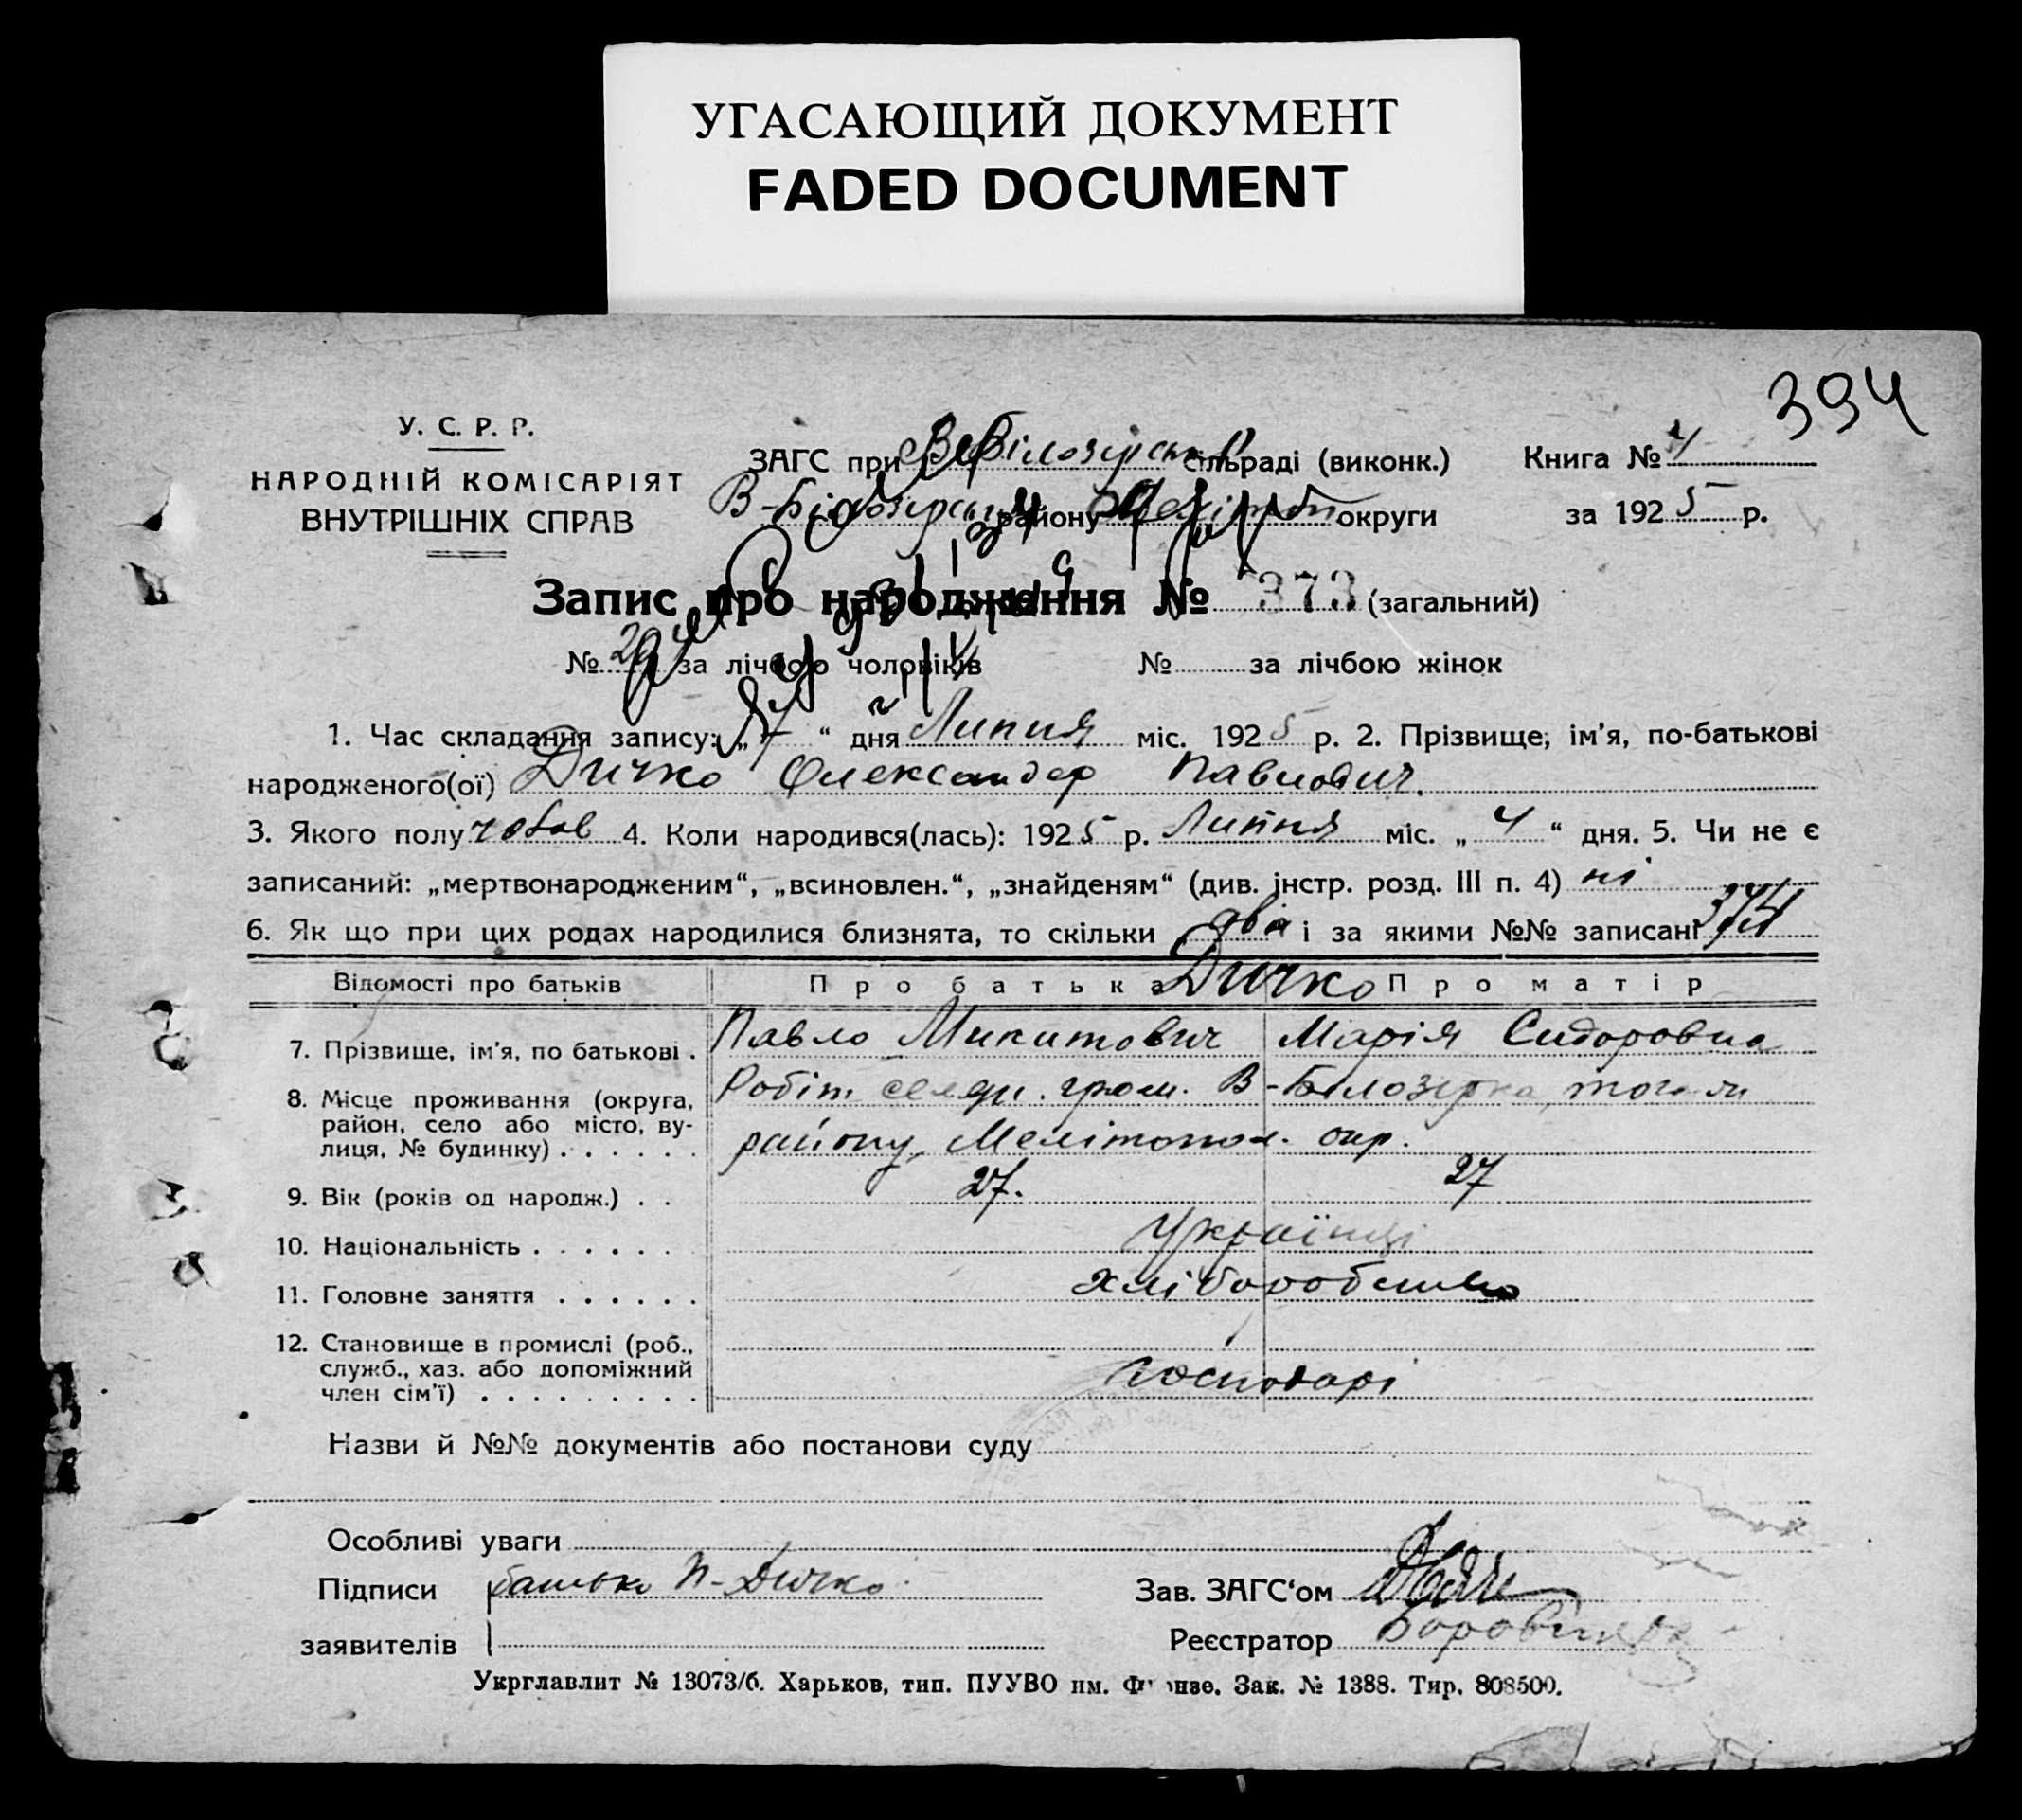 УГАСАЮЩИЙ ДОКУМЕНТ
FADED DOCUMENT
394
У. С. Р. Р.
НАРОДНІЙ КОМІСАРІЯТ
ВНУТРІШНІХ СПРАВ
ЗАГС при В-Білозірській сільраді (виконк.)
В-Білозірськ району Мелітоп округи
Книга № 4
за 1925 р.
Запис про народження № 373 (загальний)
№ за лічбою чоловіків № за лічбою жінок
1. Час складання запису: „ “ дня Липня міс. 1925 р. 2. Прізвище, ім'я, по-батькові
народженого(ої) Дичко Олександер Павлович.
3. Якого полу чолов 4. Коли народився(лась): 1925 р. Липня міс. „ 4 “ дня. 5. Чи не є
записаний: „мертвонародженим“, „всиновлен.“, „знайденям“ (див. інстр. розд. III п. 4) ні
6. Як що при цих родах народилися близнята, то скільки два і за якими №№ записані 374
Відомості про батьків Про батька Дичко Про матір
7. Прізвище, ім'я, по батькові . Павло Микитович Марія Сидоровна
8. Місце проживання (округа, район, село або місто, вулиця, № будинку) . . . . . . Робіт гром. В-Білозірка,
району, Мелітопол. окр.
9. Вік (років од народж.) . . 27. 27
10. Національність . . . . . . Українці
11. Головне заняття . . . . . . хліборобство
12. Становище в промислі (роб., служб., хаз. або допоміжний член сім'ї) . . . . . . . . . господарі
Назви й №№ документів або постанови суду
Особливі уваги
Підписи батько П-Дичко
заявителів
Зав. ЗАГС‘ом
Реєстратор
Укрглавлит № 13073/б. Харьков, тип. ПУУВО им. Фрунзе. Зак. № 1388. Тир. 808500.